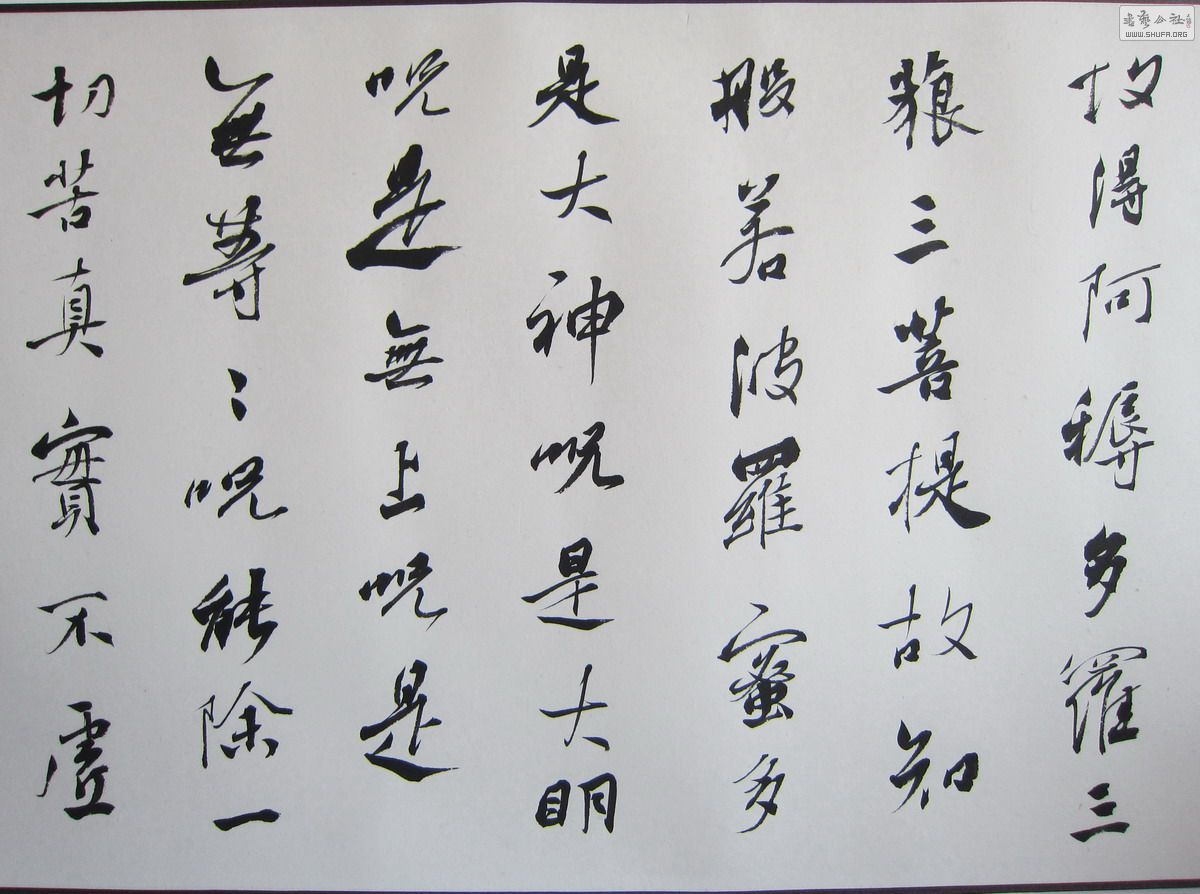 故得阿耨多羅三
藐三菩提故知
般若波羅蜜多
是大神呪是大明
呪是無上呪是
無等〻呪能除一
切苦真實不虛
书艺公社
WWW.SHUFA.ORG